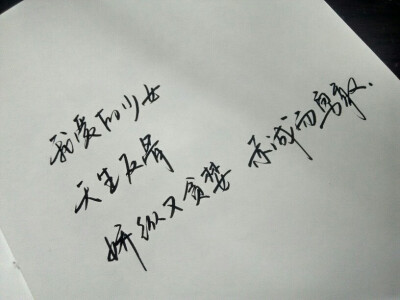 我爱的少女
天生反骨
娇纵又贪婪 赤诚而勇敢.